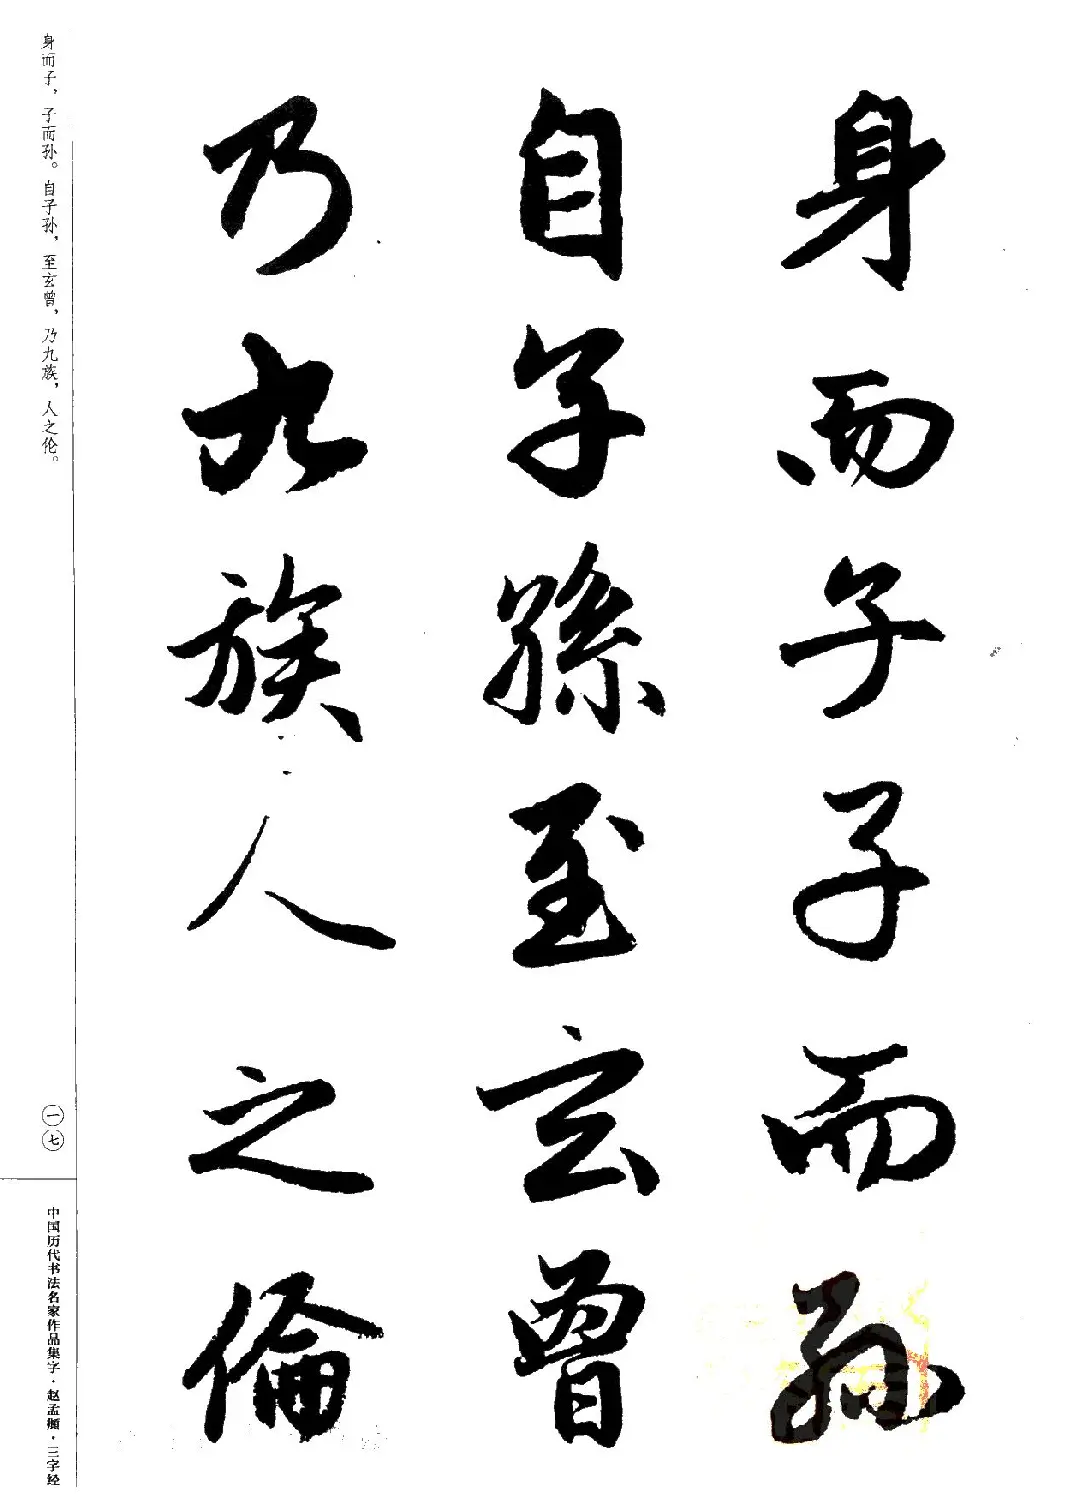 身而子子而孫
自子孫至玄曾
乃九族人之倫
身而子，子而孙。自子孙，至玄曾，乃九族，人之伦。
一七
中国历代书法名家作品集字·赵孟頫·三字经